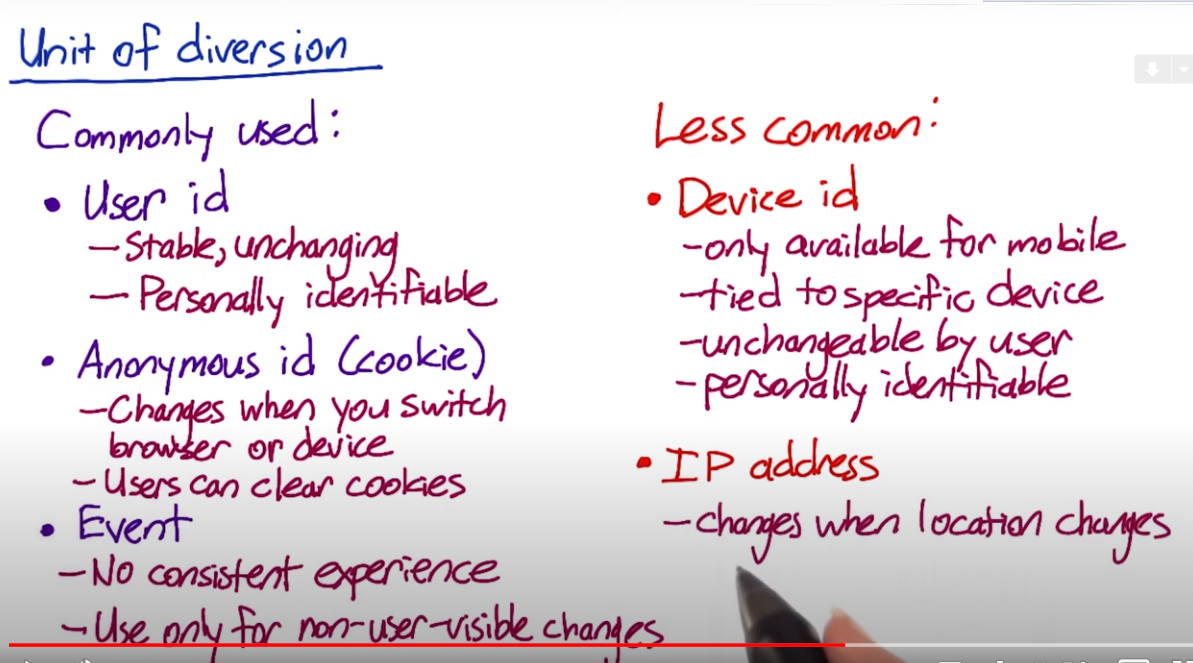 Unit of diversion
Commonly used:
• User id
– Stable, unchanging
– Personally identifiable
• Anonymous id (cookie)
– Changes when you switch
browser or device
– Users can clear cookies
• Event
– No consistent experience
– Use only for non-user-visible changes
Less common:
• Device id
– only available for mobile
– tied to specific device
– unchangeable by user
– personally identifiable
• IP address
– changes when location changes